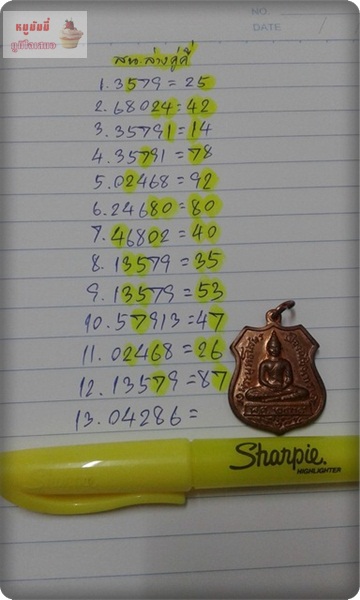 หมูยิ้มยิ้
NO.
DATE
สน.ล่างคู่คี่
1.3579=25
2.68024=42
3.35791=14
4.35791=78
5.02468=92
6.24680=80
7.46802=40
8.13579=35
9.13579=53
10.57913=47
11.02468=26
12.13579=87
13.04286=
Sharpie.
HIGHLIGHTER